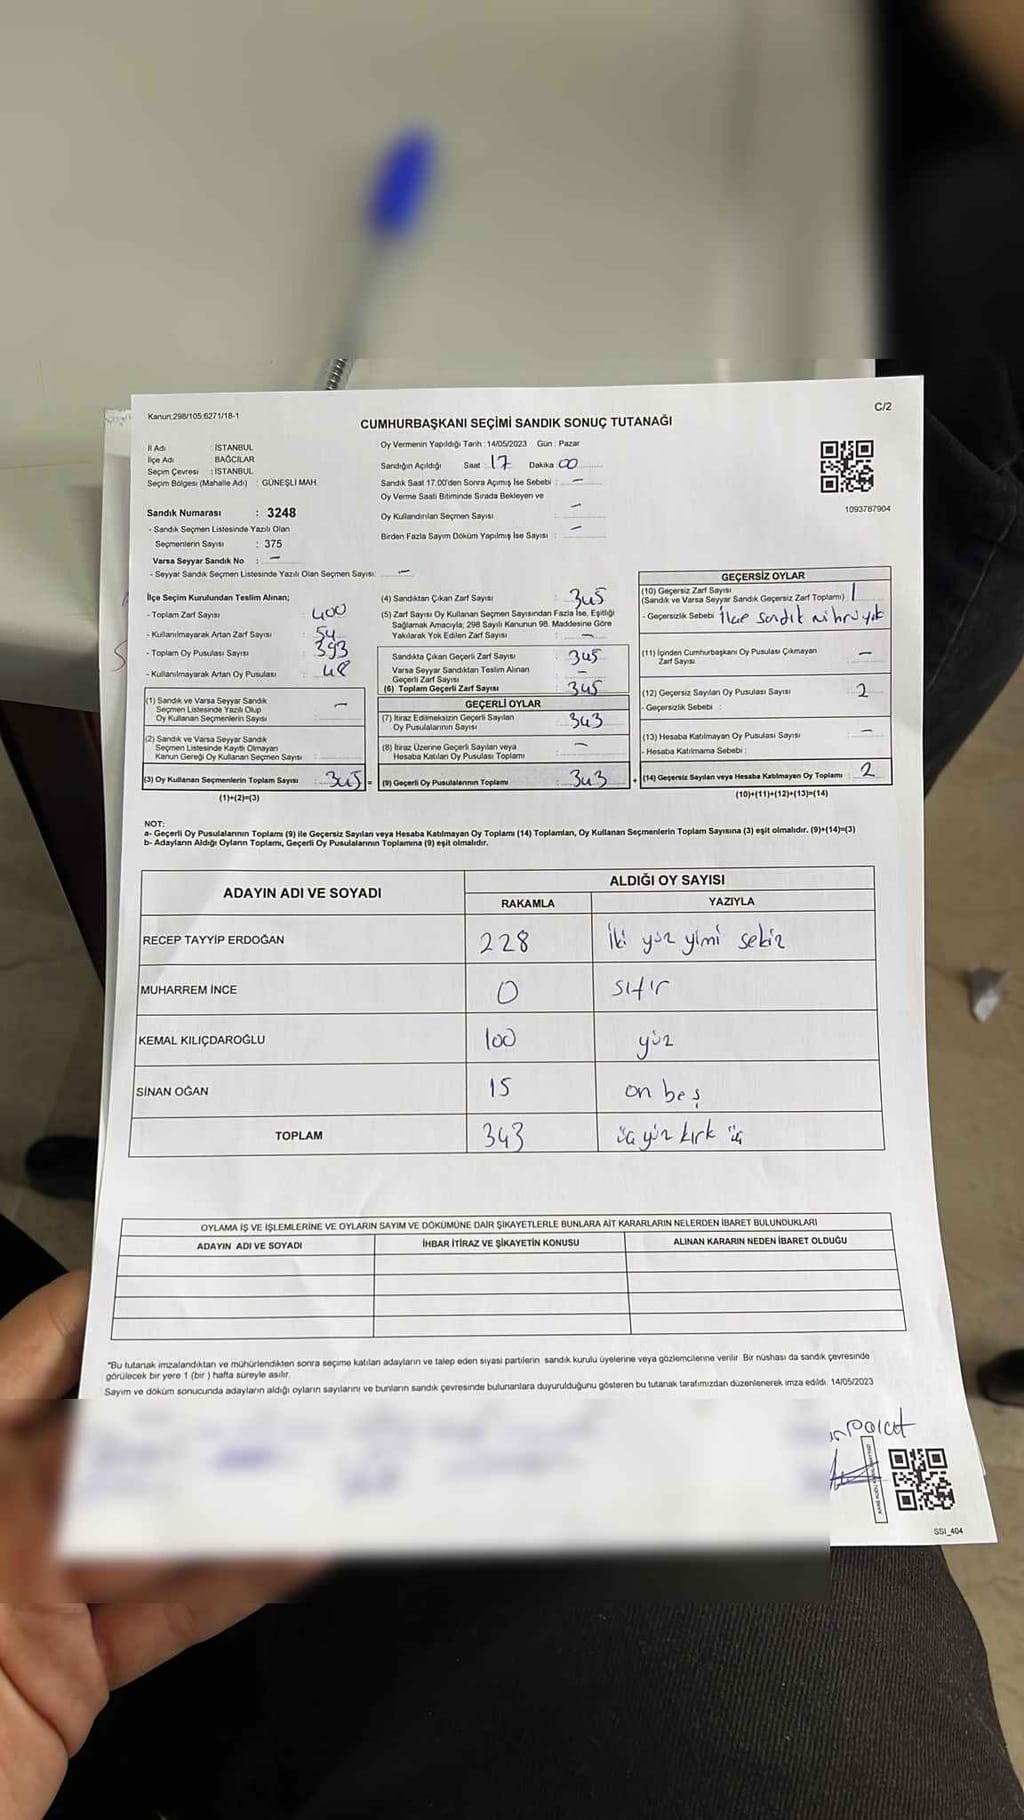 Kanun:298/105;6271/18-1
C/2
CUMHURBAŞKANI SEÇİMİ SANDIK SONUÇ TUTANAĞI
İl Adı : İSTANBUL
İlçe Adı : BAĞCILAR
Seçim Çevresi : İSTANBUL
Seçim Bölgesi (Mahalle Adı) : GÜNEŞLİ MAH.
Oy Vermenin Yapıldığı Tarih : 14/05/2023 Gün : Pazar
Sandığın Açıldığı Saat : 17 Dakika : 00
Sandık Saat 17.00'den Sonra Açımış İse Sebebi : —
Oy Verme Saati Bitiminde Sırada Bekleyen ve
Oy Kullandırılan Seçmen Sayısı : —
Birden Fazla Sayım Döküm Yapılmış İse Sayısı : —
1093787904
Sandık Numarası : 3248
- Sandık Seçmen Listesinde Yazılı Olan
Seçmenlerin Sayısı : 375
Varsa Seyyar Sandık No : —
- Seyyar Sandık Seçmen Listesinde Yazılı Olan Seçmen Sayısı: —
İlçe Seçim Kurulundan Teslim Alınan;
- Toplam Zarf Sayısı : 400
- Kullanılmayarak Artan Zarf Sayısı : 54
- Toplam Oy Pusulası Sayısı : 393
- Kullanılmayarak Artan Oy Pusulası : 48
(1) Sandık ve Varsa Seyyar Sandık
Seçmen Listesinde Yazılı Olup
Oy Kullanan Seçmenlerin Sayısı : —
(2) Sandık ve Varsa Seyyar Sandık
Seçmen Listesinde Kayıtlı Olmayan
Kanun Gereği Oy Kullanan Seçmen Sayısı :
(3) Oy Kullanan Seçmenlerin Toplam Sayısı : 345 =
(1)+(2)=(3)
(4) Sandıktan Çıkan Zarf Sayısı : 345
(5) Zarf Sayısı Oy Kullanan Seçmen Sayısından Fazla İse, Eşitliği
Sağlamak Amacıyla; 298 Sayılı Kanunun 98. Maddesine Göre
Yakılarak Yok Edilen Zarf Sayısı : —
Sandıkta Çıkan Geçerli Zarf Sayısı : 345
Varsa Seyyar Sandıktan Teslim Alınan
Geçerli Zarf Sayısı : —
(6) Toplam Geçerli Zarf Sayısı : 345
GEÇERLİ OYLAR
(7) İtiraz Edilmeksizin Geçerli Sayılan
Oy Pusulalarının Sayısı : 343
(8) İtiraz Üzerine Geçerli Sayılan veya
Hesaba Katılan Oy Pusulası Toplamı : —
(9) Geçerli Oy Pusulalarının Toplamı : 343 +
GEÇERSİZ OYLAR
(10) Geçersiz Zarf Sayısı
(Sandık ve Varsa Seyyar Sandık Geçersiz Zarf Toplamı) : 1
- Geçersizlik Sebebi : İlçe sandık mührü yok
(11) İçinden Cumhurbaşkanı Oy Pusulası Çıkmayan
Zarf Sayısı : —
(12) Geçersiz Sayılan Oy Pusulası Sayısı : 2
- Geçersizlik Sebebi :
(13) Hesaba Katılmayan Oy Pusulası Sayısı : —
- Hesaba Katılmama Sebebi :
(14) Geçersiz Sayılan veya Hesaba Katılmayan Oy Toplamı : 2
(10)+(11)+(12)+(13)=(14)
NOT:
a- Geçerli Oy Pusulalarının Toplamı (9) ile Geçersiz Sayılan veya Hesaba Katılmayan Oy Toplamı (14) Toplamları, Oy Kullanan Seçmenlerin Toplam Sayısına (3) eşit olmalıdır. (9)+(14)=(3)
b- Adayların Aldığı Oyların Toplamı, Geçerli Oy Pusulalarının Toplamına (9) eşit olmalıdır.
ADAYIN ADI VE SOYADI ALDIĞI OY SAYISI
RAKAMLA YAZIYLA
RECEP TAYYİP ERDOĞAN 228 İki yüz yimi sekiz
MUHARREM İNCE 0 sıfır
KEMAL KILIÇDAROĞLU 100 yüz
SİNAN OĞAN 15 on beş
TOPLAM 343 üç yüz kırk üç
OYLAMA İŞ VE İŞLEMLERİNE VE OYLARIN SAYIM VE DÖKÜMÜNE DAİR ŞİKAYETLERLE BUNLARA AİT KARARLARIN NELERDEN İBARET BULUNDUKLARI
ADAYIN ADI VE SOYADI İHBAR İTİRAZ VE ŞİKAYETİN KONUSU ALINAN KARARIN NEDEN İBARET OLDUĞU
"Bu tutanak imzalandıktan ve mühürlendikten sonra seçime katılan adayların ve talep eden siyasi partilerin sandık kurulu üyelerine veya gözlemcilerine verilir. Bir nüshası da sandık çevresinde
görülecek bir yere 1 (bir ) hafta süreyle asılır.
Sayım ve döküm sonucunda adayların aldığı oyların sayılarını ve bunların sandık çevresinde bulunanlara duyurulduğunu gösteren bu tutanak tarafımızdan düzenlenerek imza edildi. 14/05/2023
SSI_404